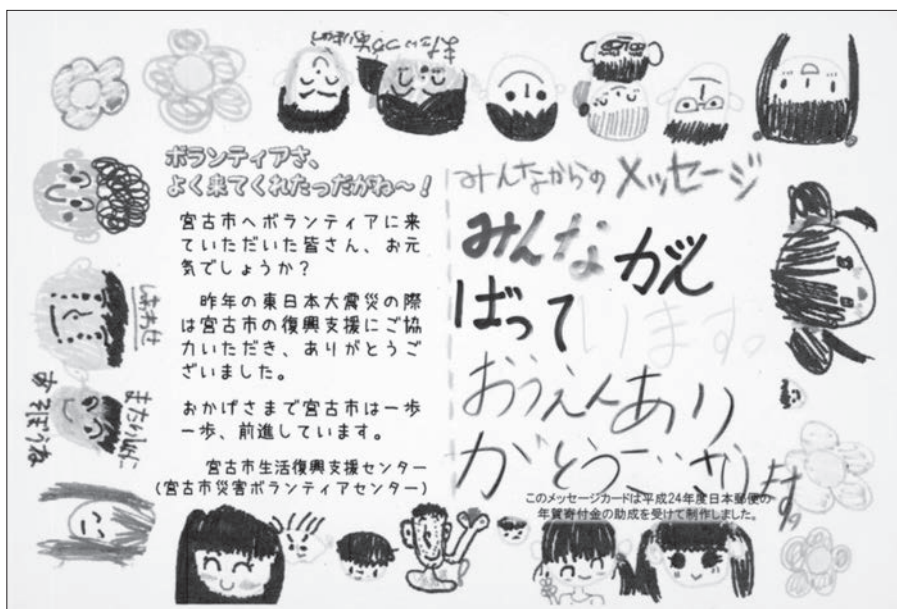 ボランティアさ、
よく来てくれたっだがね〜！
宮古市へボランティアに来
ていただいた皆さん、お元
気でしょうか？
昨年の東日本大震災の際
は宮古市の復興支援にご協
力いただき、ありがとうご
ざいました。
おかげさまで宮古市は一歩
一歩、前進しています。
宮古市生活復興支援センター
(宮古市災害ボランティアセンター)
みんなからのメッセージ
みんながん
ばって います。
おうえんあり
がとうございます。
このメッセージカードは平成24年度日本郵便の
年賀寄付金の助成を受けて制作しました。
しあわせ
またいっしょに
あそぼうね